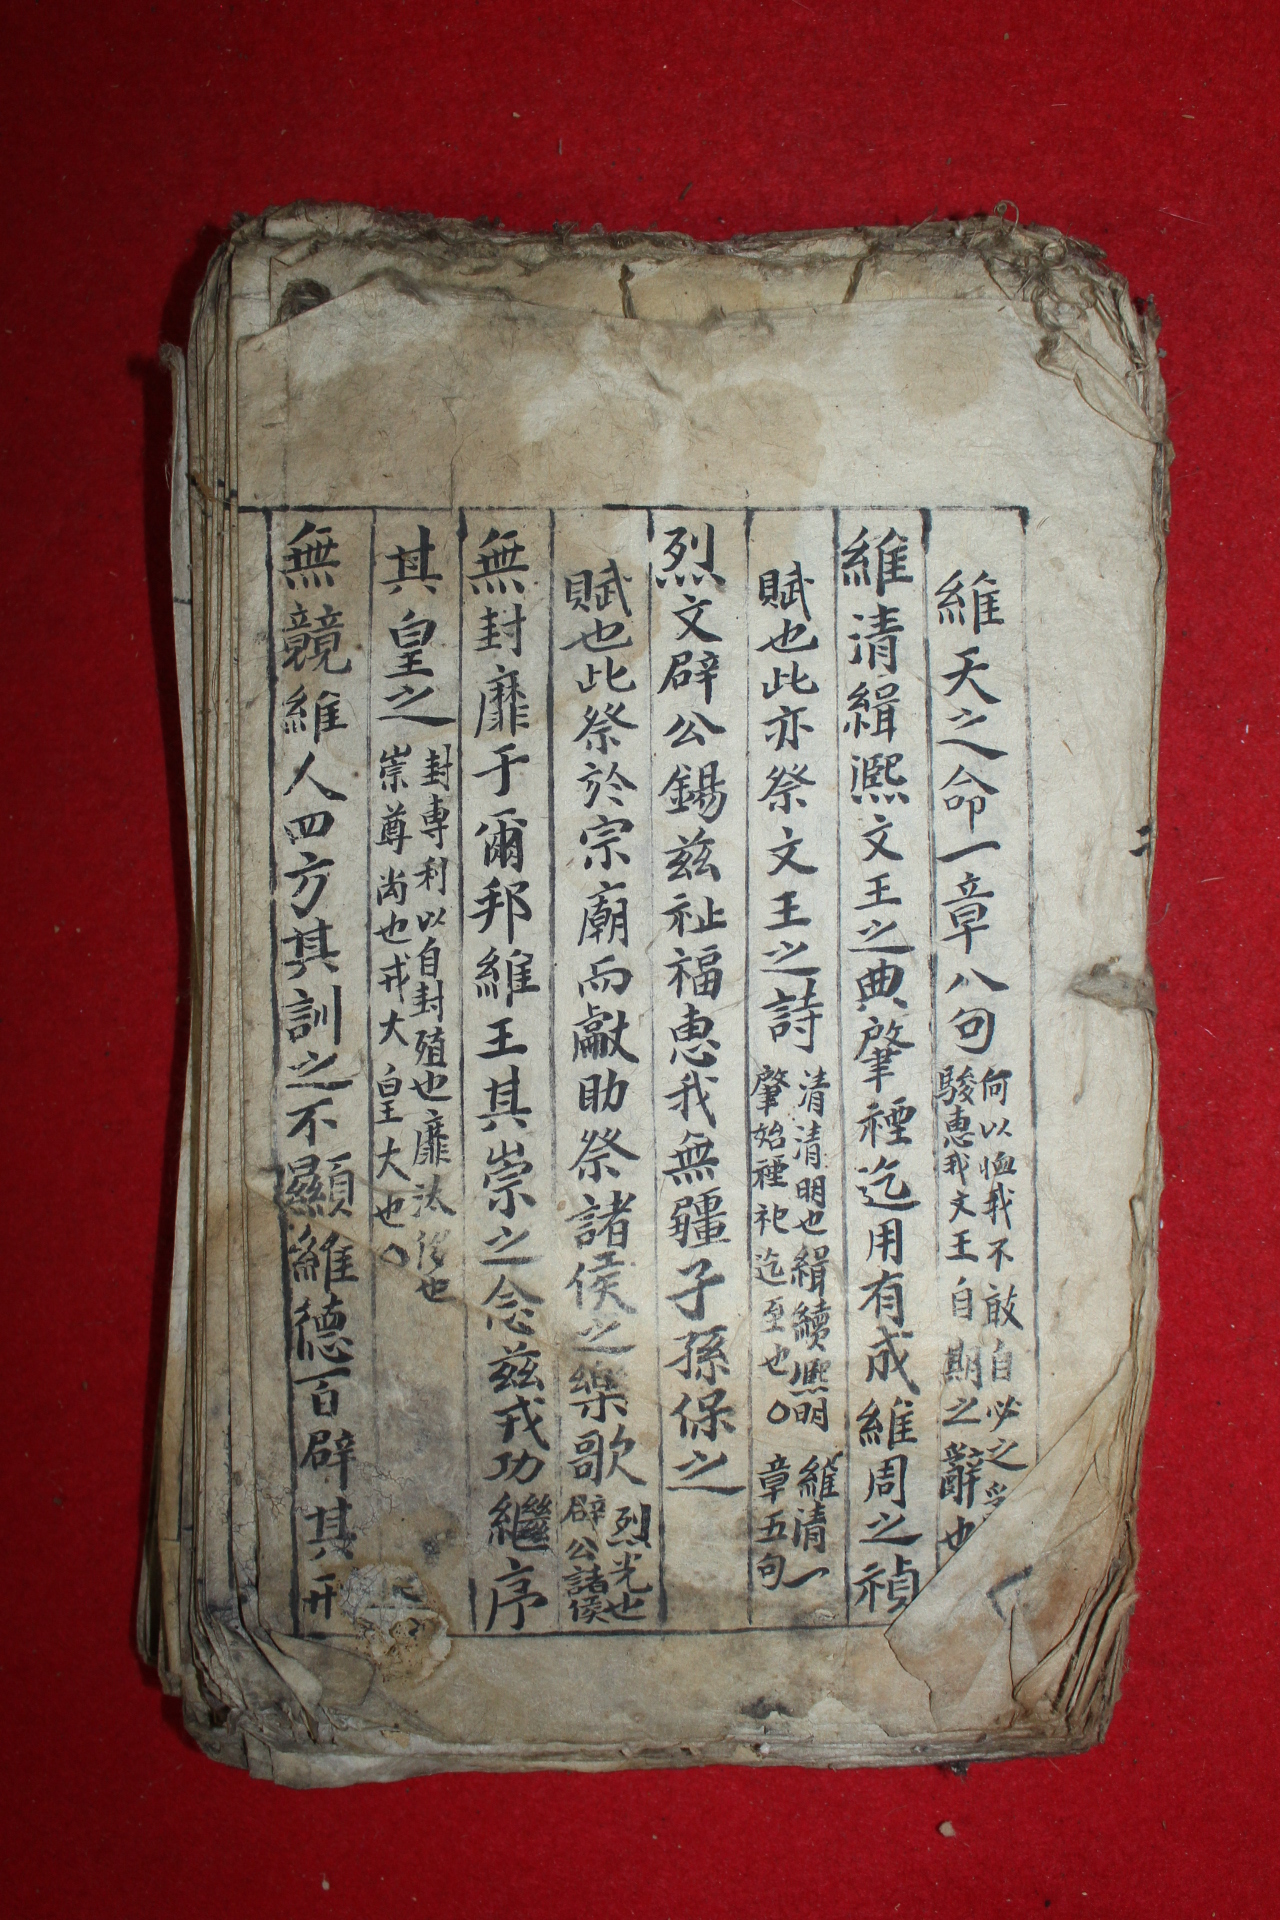 維天之命一章八句
何以恤我不敢自必之
駿惠我文王自期之辭也
維清緝熙文王之典肇禋迄用有成維周之禎
賦也此亦祭文王之詩
清清明也緝續熙明
肇始禋祀迄至也〇
維清一
章五句
烈文辟公錫茲祉福惠我無疆子孫保之
賦也此祭於宗廟而獻助祭諸侯之樂歌
烈光也
辟公諸侯
無封靡于爾邦維王其崇之念茲戎功繼序
其皇之
封專利以自封殖也靡汰侈也
崇尊尚也戎大皇大也〇
無競維人四方其訓之不顯維德百辟其刑